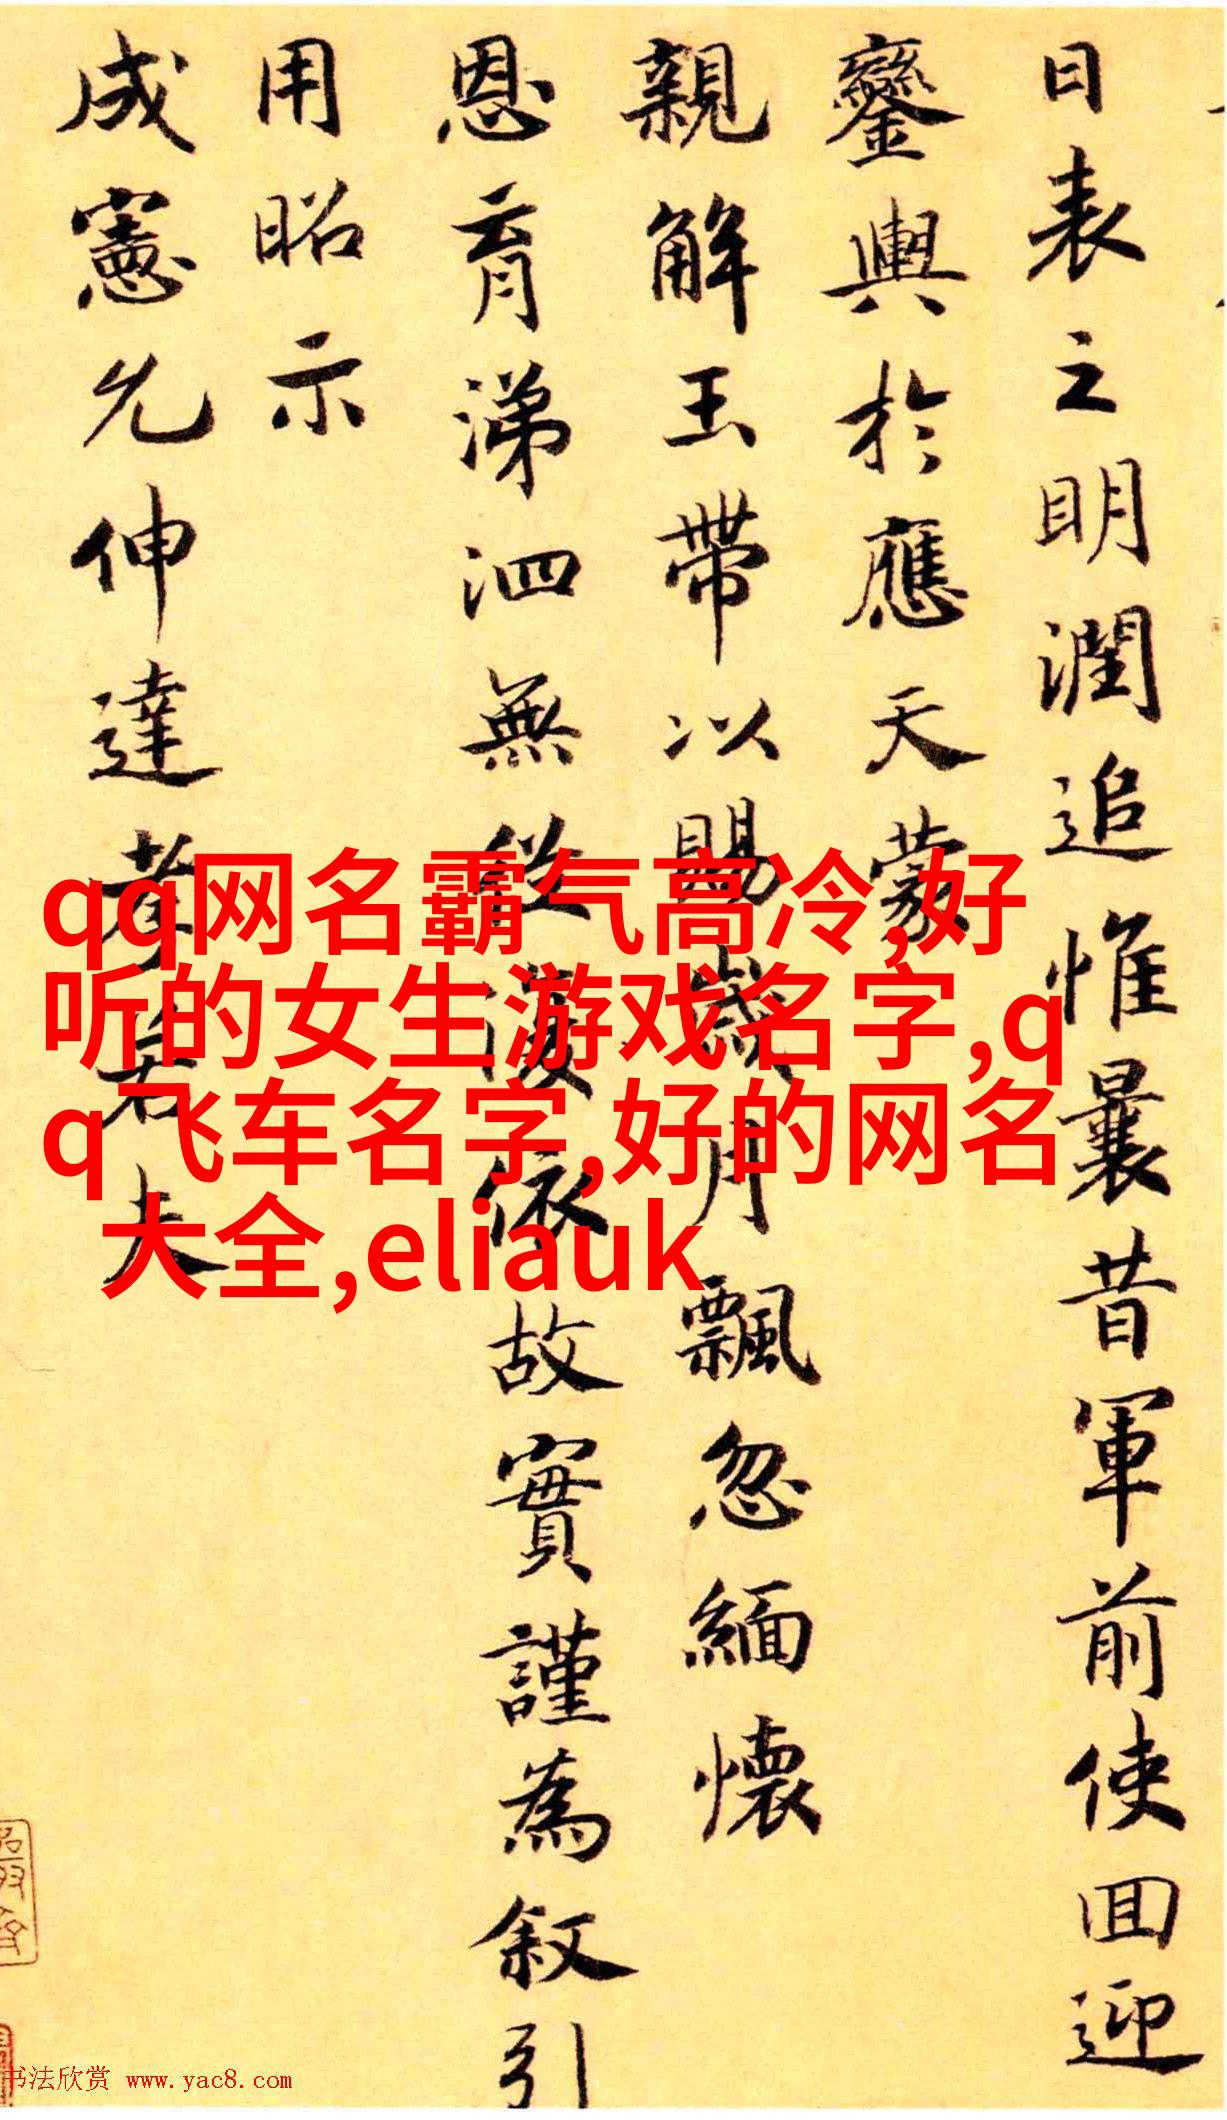 日表之明潤追惟曩昔軍前使回迎
鑾輿於應天蒙
親解玉帶以賜歲月飄忽緬懷
恩育涕泗無從復依故實謹為叙引
用昭示
成憲允伸達孝若夫
qq网名霸气高冷,好
听的女生游戏名字,q
q飞车名字,好的网名
大全,eliauk
书法欣赏 www.yac8.com